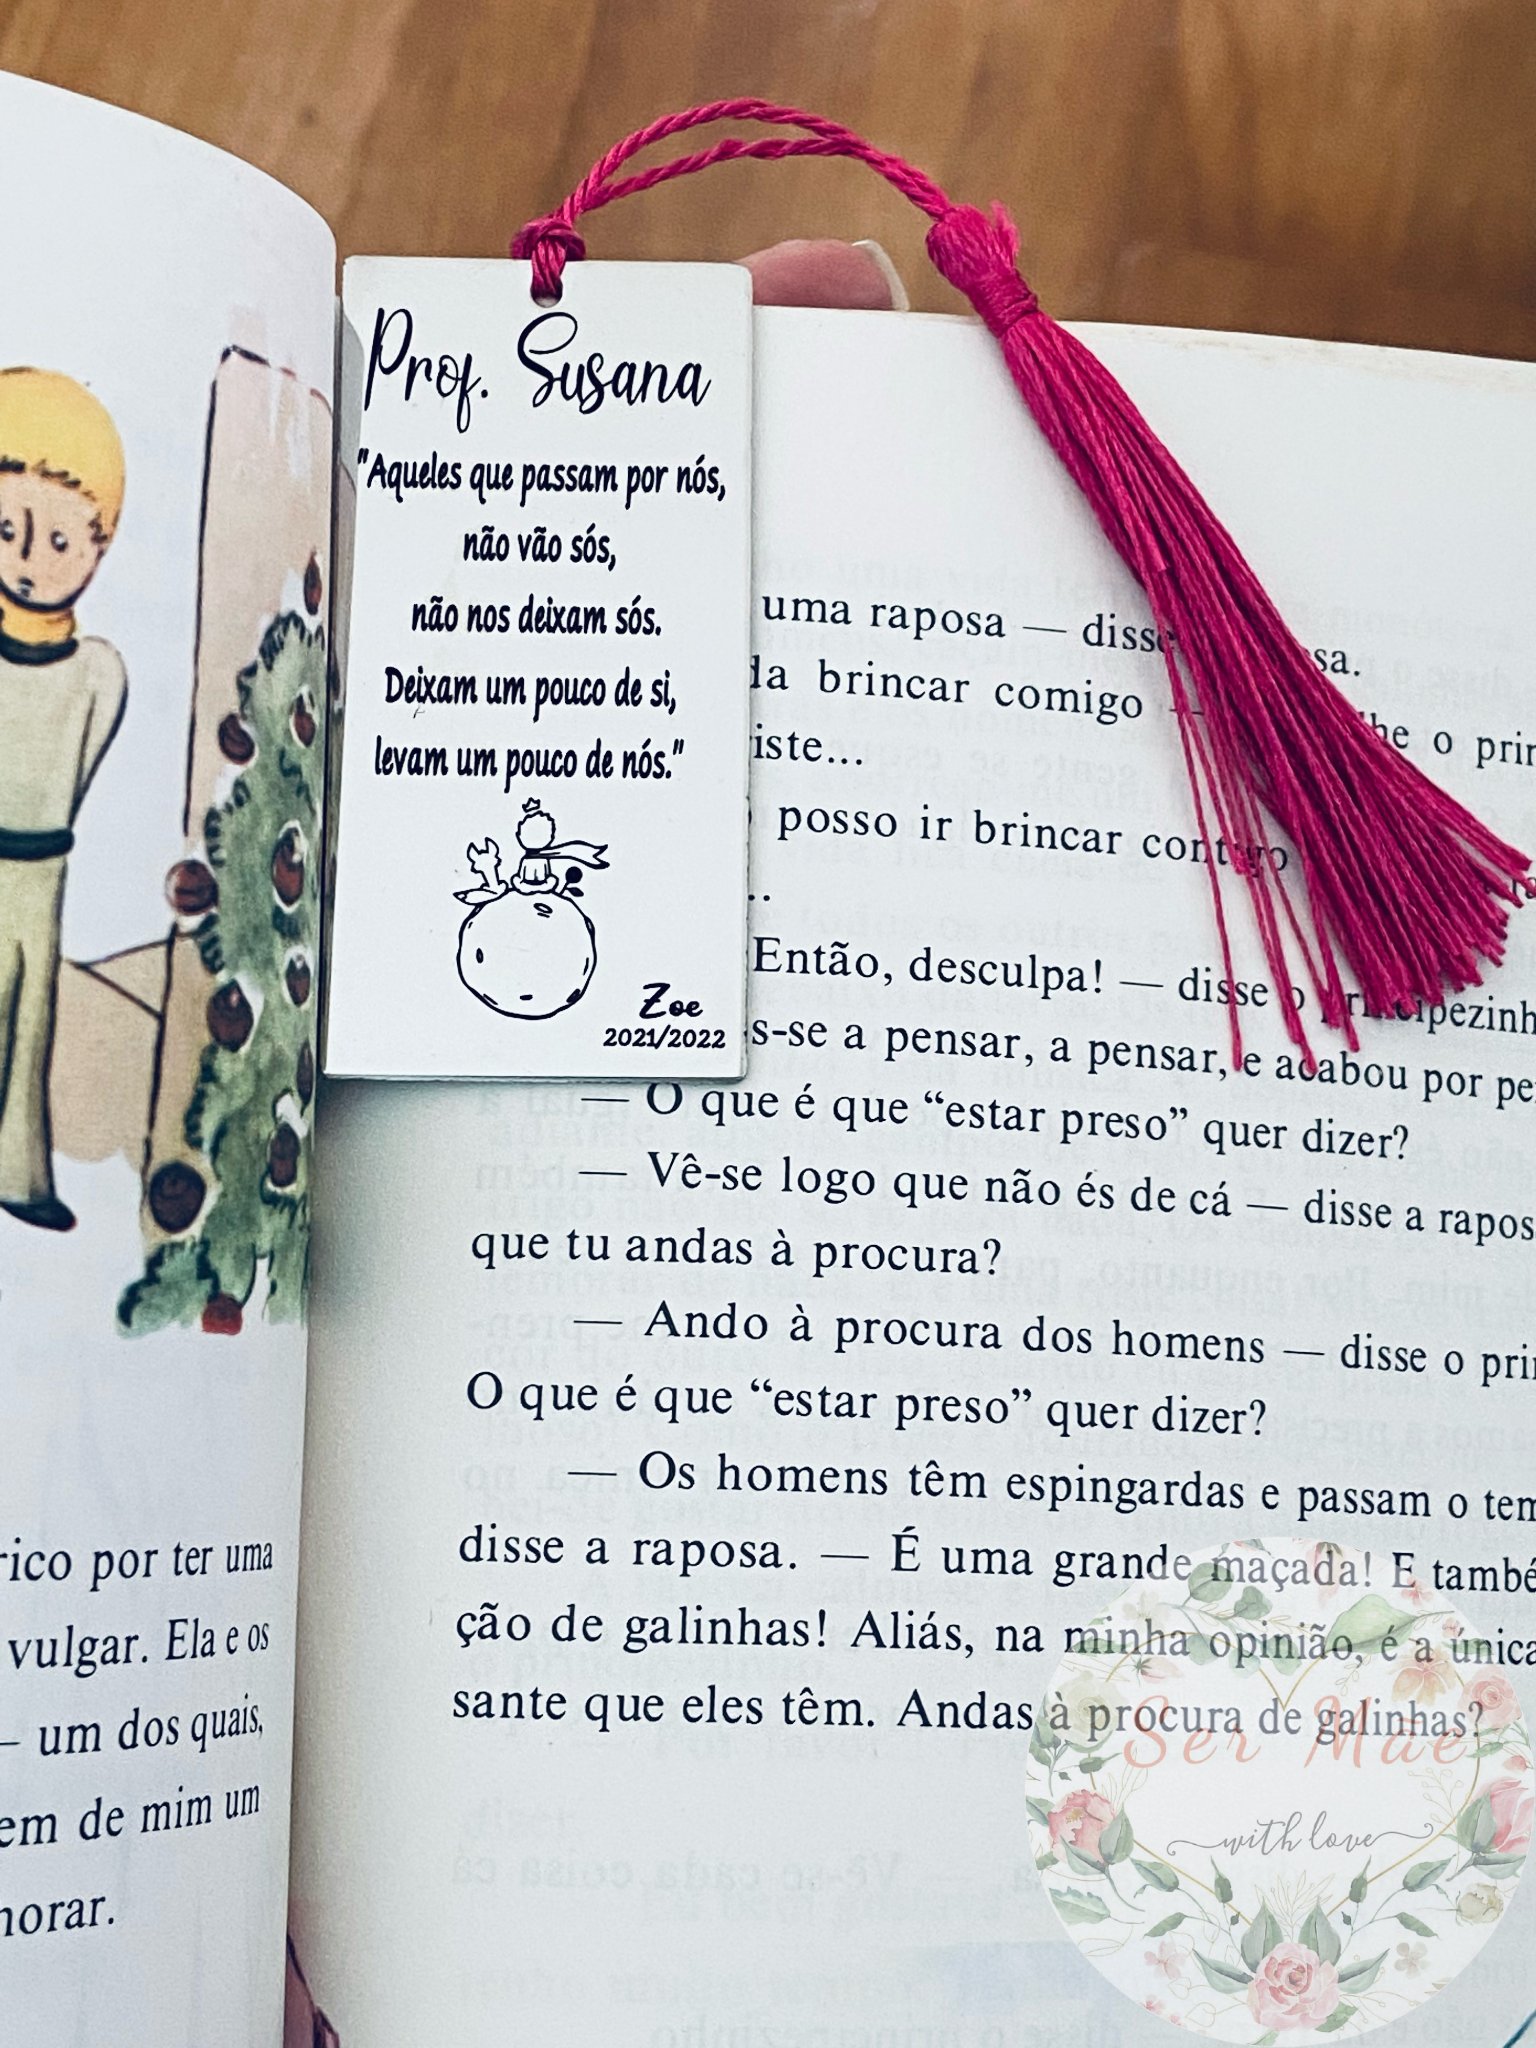 Prof. Susana
"Aqueles que passam por nós,
não vão sós,
não nos deixam sós.
Deixam um pouco de si,
levam um pouco de nós."
Zoe
2021/2022
uma raposa — disse
sa.
brincar comigo —
he o prin
iste...
posso ir brincar contigo
Então, desculpa! — disse o principezinh
s-se a pensar, a pensar, e acabou por pe
— O que é que “estar preso” quer dizer?
— Vê-se logo que não és de cá — disse a rapos
que tu andas à procura?
— Ando à procura dos homens — disse o prin
O que é que “estar preso” quer dizer?
— Os homens têm espingardas e passam o tem
disse a raposa. — É uma grande maçada! E també
ção de galinhas! Aliás, na minha opinião, é a única
sante que eles têm. Andas à procura de galinhas?
rico por ter uma
vulgar. Ela e os
— um dos quais,
em de mim um
horar.
Ser Mãe
with love